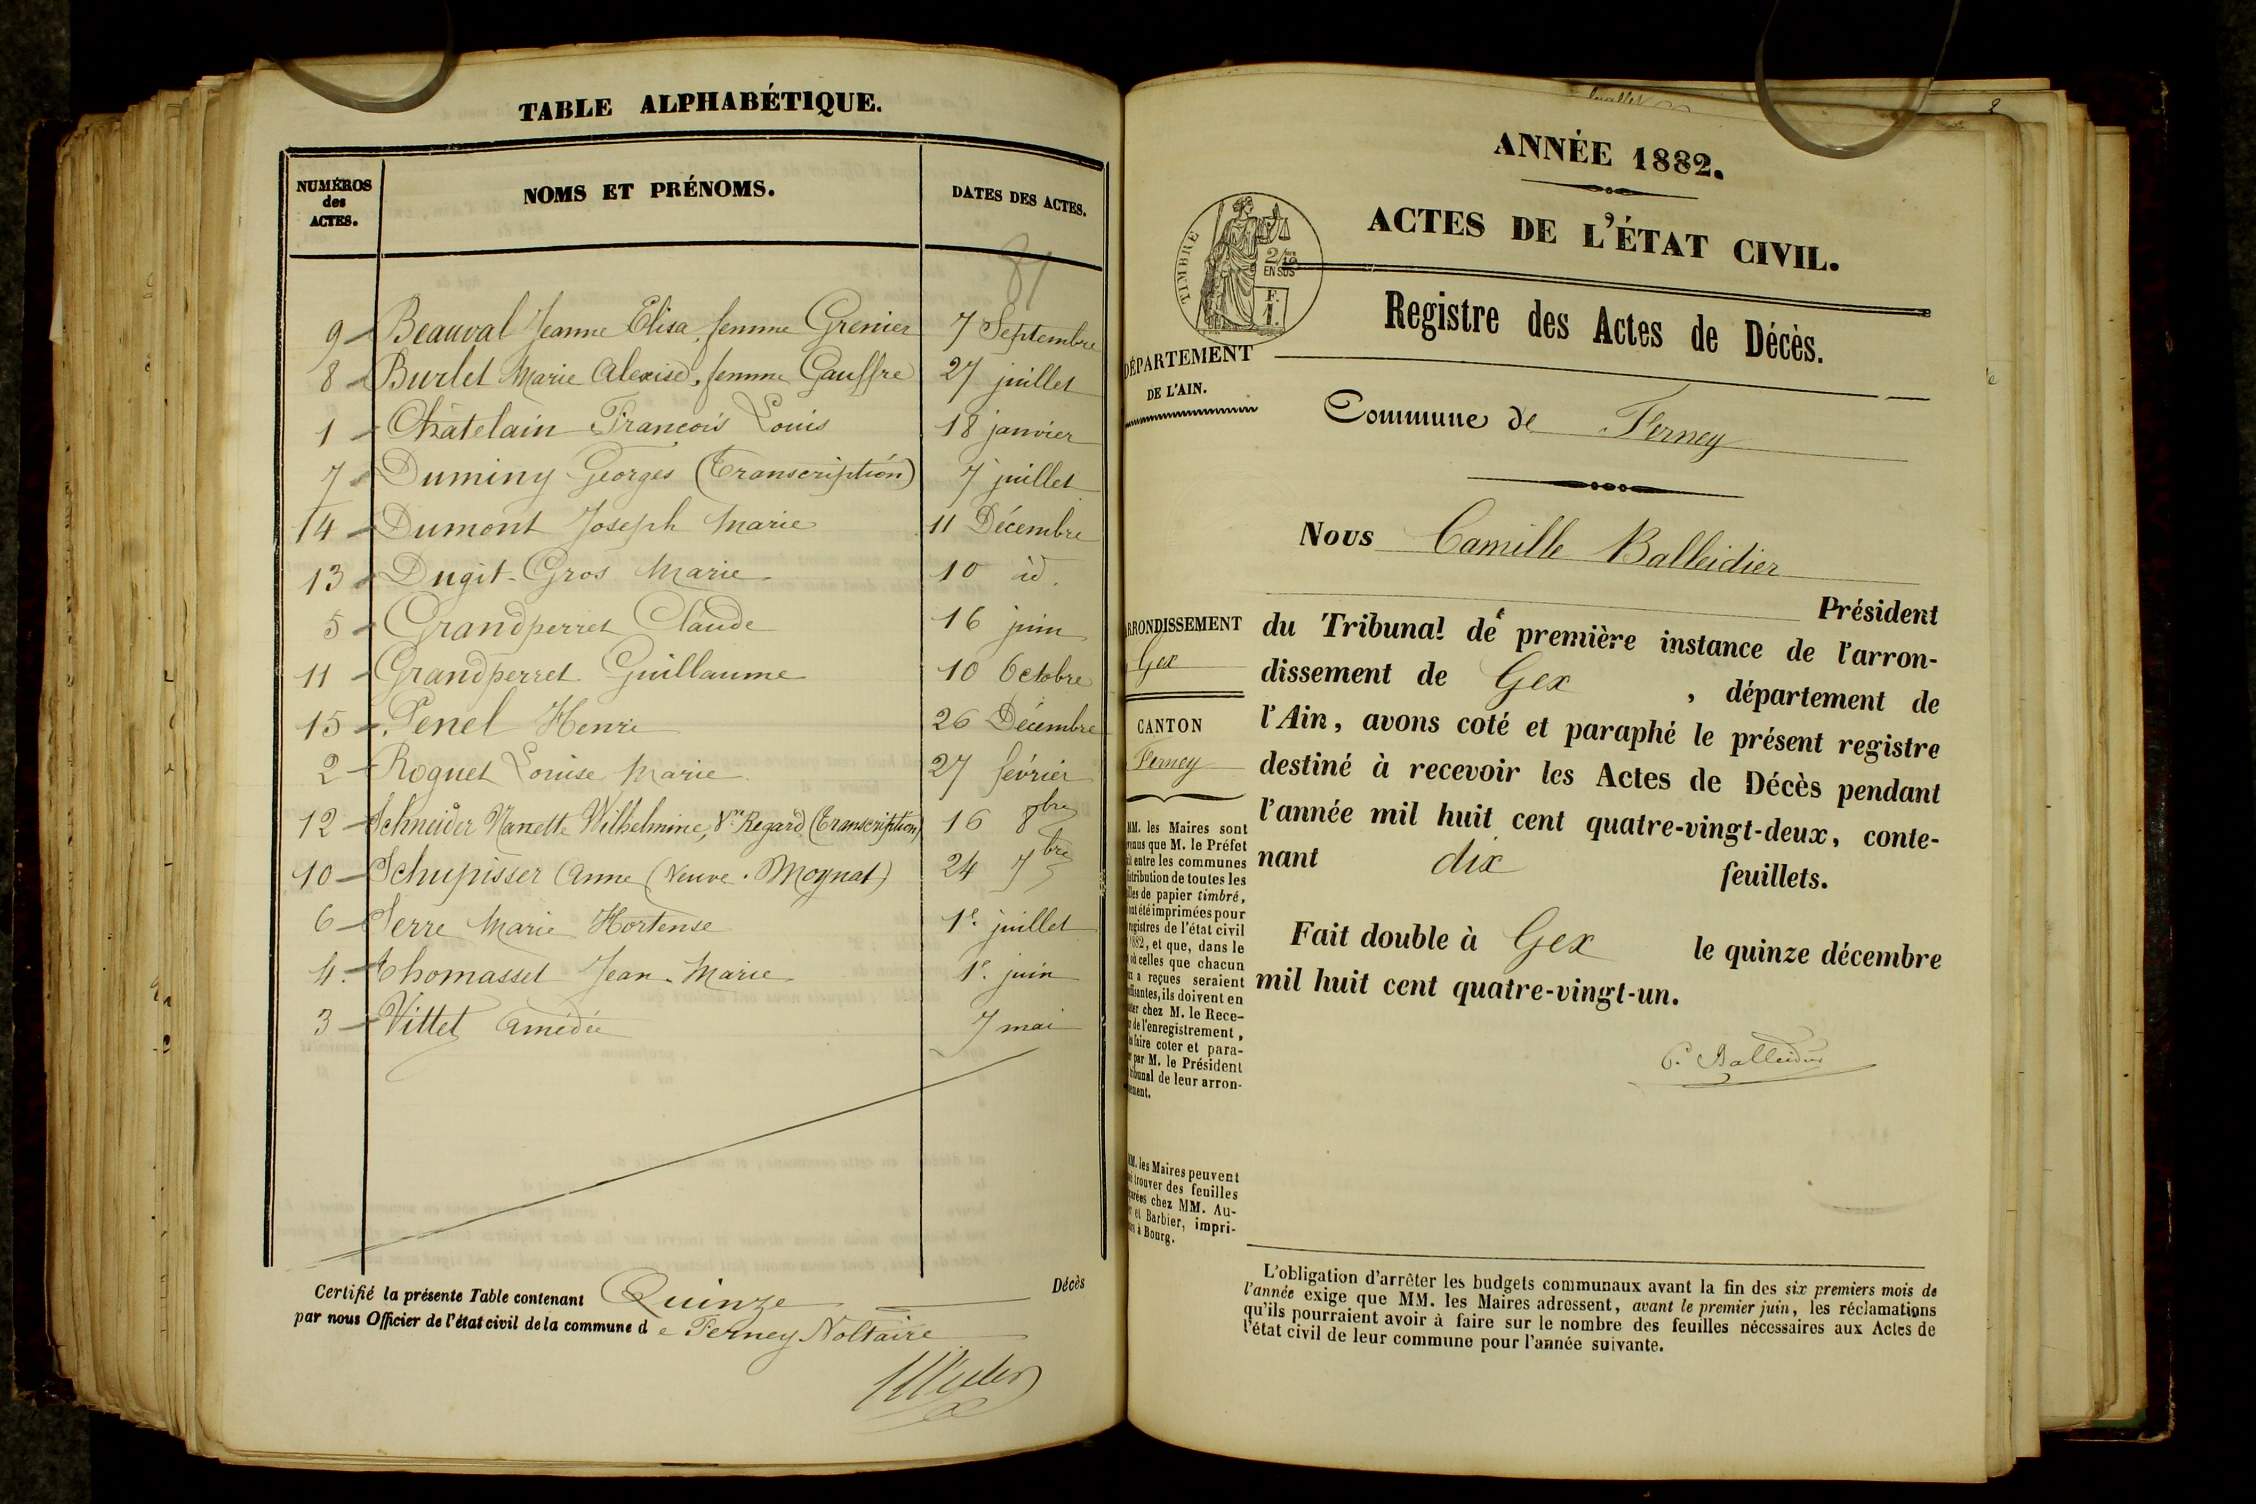 TABLE ALPHABÉTIQUE.
NUMÉROS des ACTES. NOMS ET PRÉNOMS. DATES DES ACTES.
81
9 Beauval Jeanne Elisa, femme Grenier 7 Septembre
8 Burlet Marie Alexise, femme Gauffre 27 juillet
1 Châtelain François Louis 18 janvier
7 Duminy Georges (Transcription) 7 juillet
14 Dumont Joseph Marie 11 Décembre
13 Dugit-Gros Marie 10 id.
5 Grandperret Claude 16 juin
11 Grandperret Guillaume 10 Octobre
15 Penel Henri 26 Décembre
2 Roguet Louise Marie 27 février
12 Schneider Nanette Wilhelmine, Vve Regard (Transcription) 16 8bre
10 Schupisser Anne (Veuve Moynat) 24 7bre
6 Serre Marie Hortense 1er juillet
4. Thomasset Jean-Marie 1er juin
3 Vittet Amédée 7 mai
Certifié la présente Table contenant Quinze Décès
par nous Officier de l'état civil de la commune de Ferney Voltaire
ANNÉE 1882.
ACTES DE L'ÉTAT CIVIL.
TIMBRE
2/10
EN SUS
F.
1.
Registre des Actes de Décès.
DÉPARTEMENT
DE L'AIN.
Commune de Ferney
Nous Camille Balleidier
Président
du Tribunal de première instance de l'arron-
dissement de Gex, département de
l'Ain, avons coté et paraphé le présent registre
destiné à recevoir les Actes de Décès pendant
l'année mil huit cent quatre-vingt-deux, conte-
nant dix feuillets.
Fait double à Gex le quinze décembre
mil huit cent quatre-vingt-un.
C. Balleidier
RRONDISSEMENT
Gex
CANTON
Ferney
MM. les Maires sont
que M. le Préfet
entre les communes
de toutes les
de papier timbré,
été imprimées pour
registres de l'état civil
1882, et que, dans le
où celles que chacun
a reçues seraient
ils doivent en
chez M. le Rece-
de l'enregistrement,
faire coter et para-
par M. le Président
de leur arron-
MM. les Maires peuvent
trouver des feuilles
chez MM. Au-
et Barbier, impri-
à Bourg.
L'obligation d'arrêter les budgets communaux avant la fin des six premiers mois de
l'année exige que MM. les Maires adressent, avant le premier juin, les réclamations
qu'ils pourraient avoir à faire sur le nombre des feuilles nécessaires aux Actes de
l'état civil de leur commune pour l'année suivante.